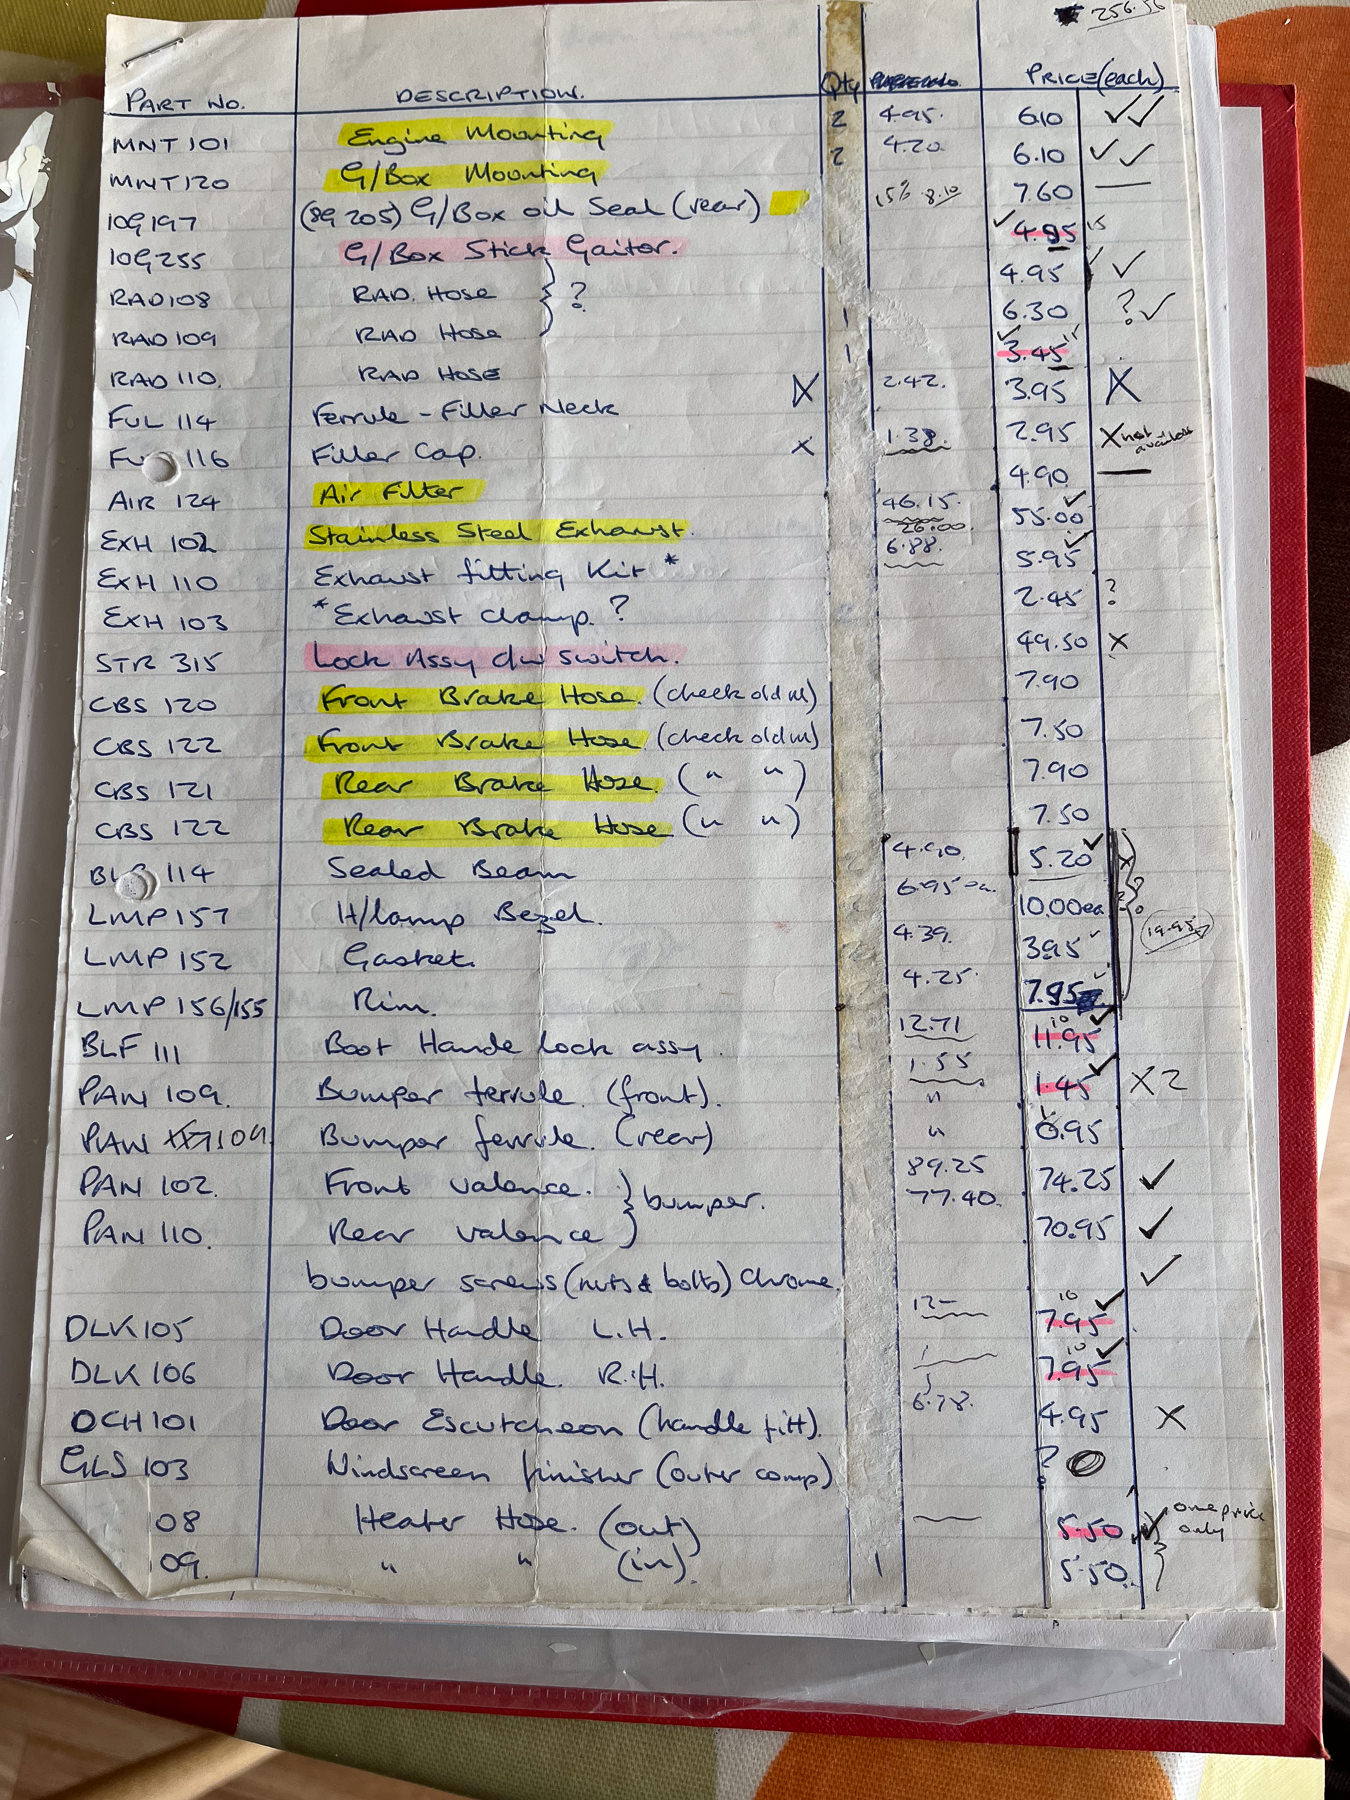 256.56
PART NO. DESCRIPTION. Qty PRICE (each)
MNT 101 Engine Mounting 2 4.95. 6.10 ✓✓
MNT 120 G/Box Mounting 2 4.20 6.10 ✓✓
10G197 (8G 205) G/Box oil Seal (rear) 15% 8.10 7.60 —
10G255 G/Box Stick Gaitor. ✓ 4.95 15
RAD108 RAD. Hose } ? 4.95 ✓
RAD 109 RAD Hose 1 6.30 ? ✓
RAD 110. RAD HOSE 1 ✓ 3.45
FUL 114 Ferrule - Filler Neck X 2.42. 3.95 X
116 Filler Cap. X 1.38. 2.95 X not available
AIR 124 Air Filter 4.90 —
EXH 102 Stainless Steel Exhaust. 46.15. 26.00. 55.00 ✓
EXH 110 Exhaust fitting Kit * 6.88. 5.95 ✓
EXH 103 *Exhaust clamp. ? 2.45 ?
STR 315 Lock Assy c/w switch. 49.50 X
CBS 120 Front Brake Hose. (check old m) 7.90
CBS 122 Front Brake Hose. (check old m) 7.50
CBS 121 Rear Brake Hose. ( " " ) 7.90
CBS 122 Rear Brake Hose ( " " ) 7.50
114 Sealed Beam 4.90. 5.20 ✓ X
LMP 157 H/lamp Bezel. 6.95 ea. 10.00ea ?
LMP 152 Gasket. 4.39. 3.95 ✓ 19.95
LMP 156/155 Rim. 4.25. 7.95 ✓
BLF 111 Boot Hande lock assy. 12.71 10 11.95 ✓
PAN 109. Bumper ferrule. (front). 1.55 1.45 ✓ X 2
PAN 109. Bumper ferrule. (rear) " 0.95
PAN 102. Front valence. } bumper. 89.25 74.25 ✓
PAN 110. Rear valence 77.40. 70.95 ✓
bumper screws (nuts & bolts) Chrome. ✓
DLK105 Door Handle L.H. 12- 10 7.95 ✓
DLK 106 Door Handle. R.H. 10 7.95 ✓
DCH101 Door Escutcheon (handle fitt). 6.78. 4.95 X
GLS 103 Windscreen finisher (outer comp) ?
08 Heater Hose. (out) 5.50 ✓ } one price only
09. " " (in). 1 5.50.